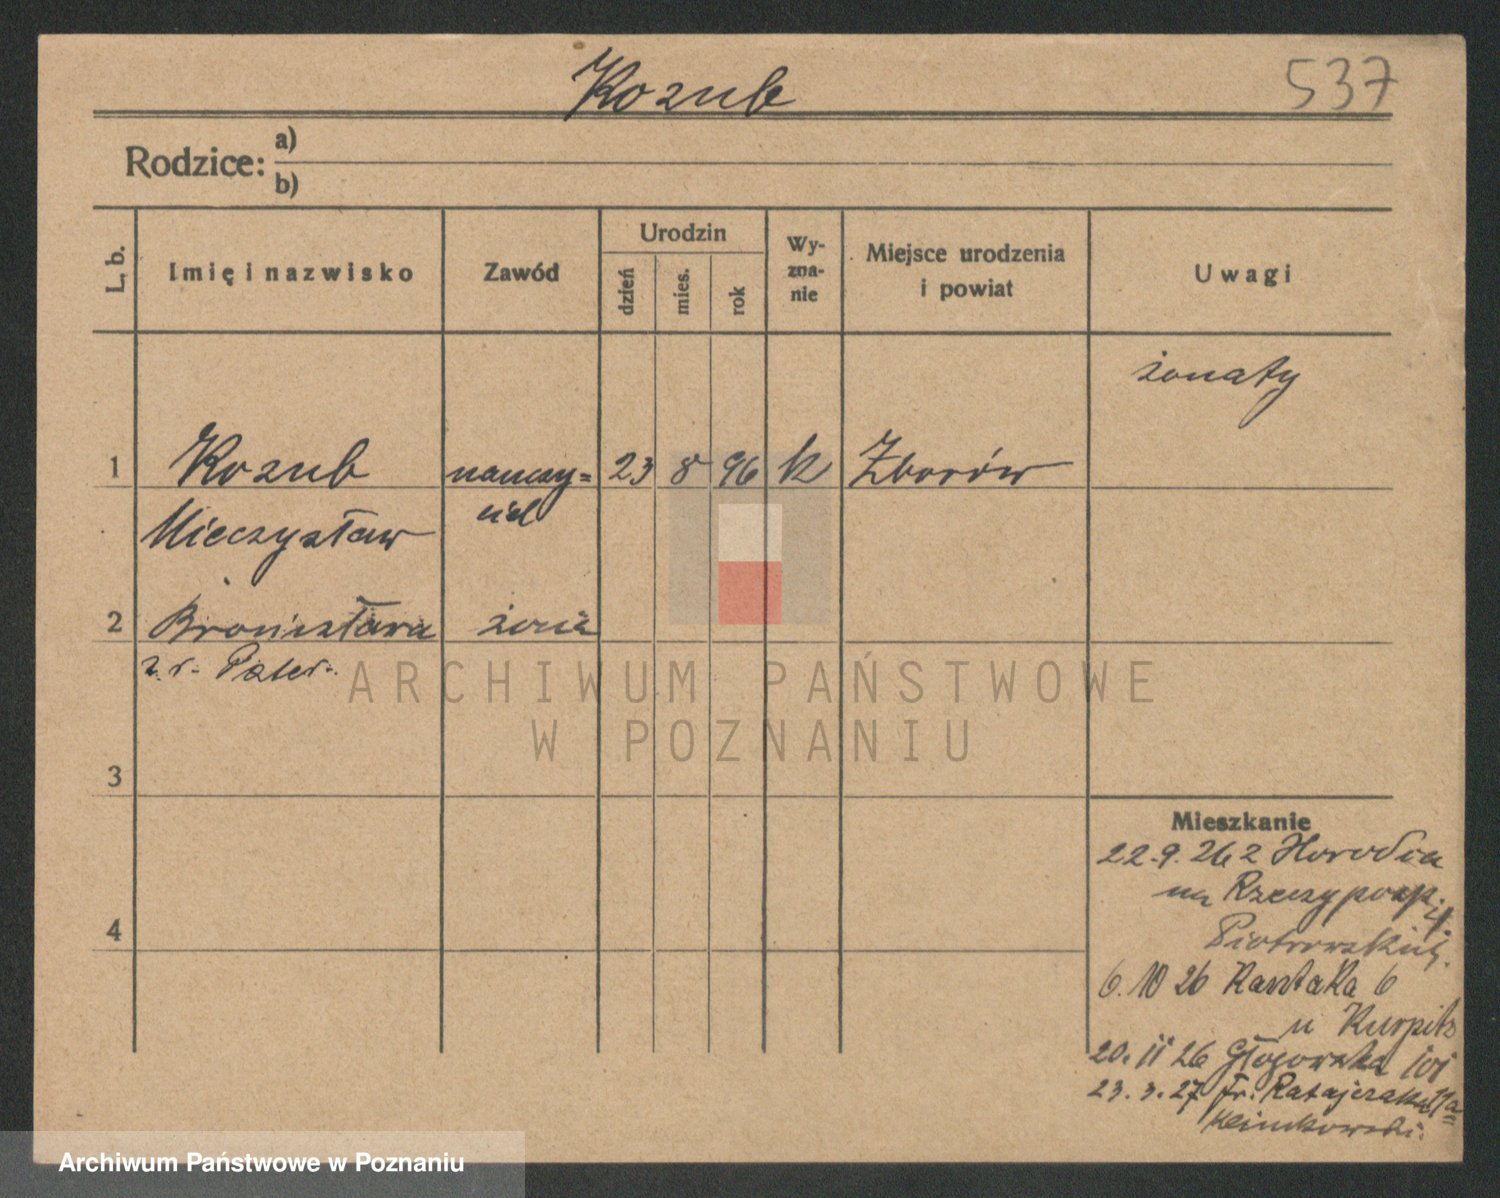 Kozub
537
Rodzice: a)
b)
L. b.
Imię i nazwisko
Zawód
Urodzin
dzień
mies.
rok
Wy-
zna-
nie
Miejsce urodzenia
i powiat
Uwagi
żonaty
1 Kozub nauczy= 23 8 96 k Zborów
ciel
Mieczysław
2 Bronisława żona
z. r. Pater.
ARCHIWUM PAŃSTWOWE
W POZNANIU
3
Mieszkanie
22.9.26 z Horodła
na Rzeczyposp.
4
Piotrowskiej.
6. 10 26 Kantaka 6
u Kurpisz
20. 11 26 Głogowska 101
23. 3. 27 Fr. Ratajczaka 11a
Klimkowski.
Archiwum Państwowe w Poznaniu